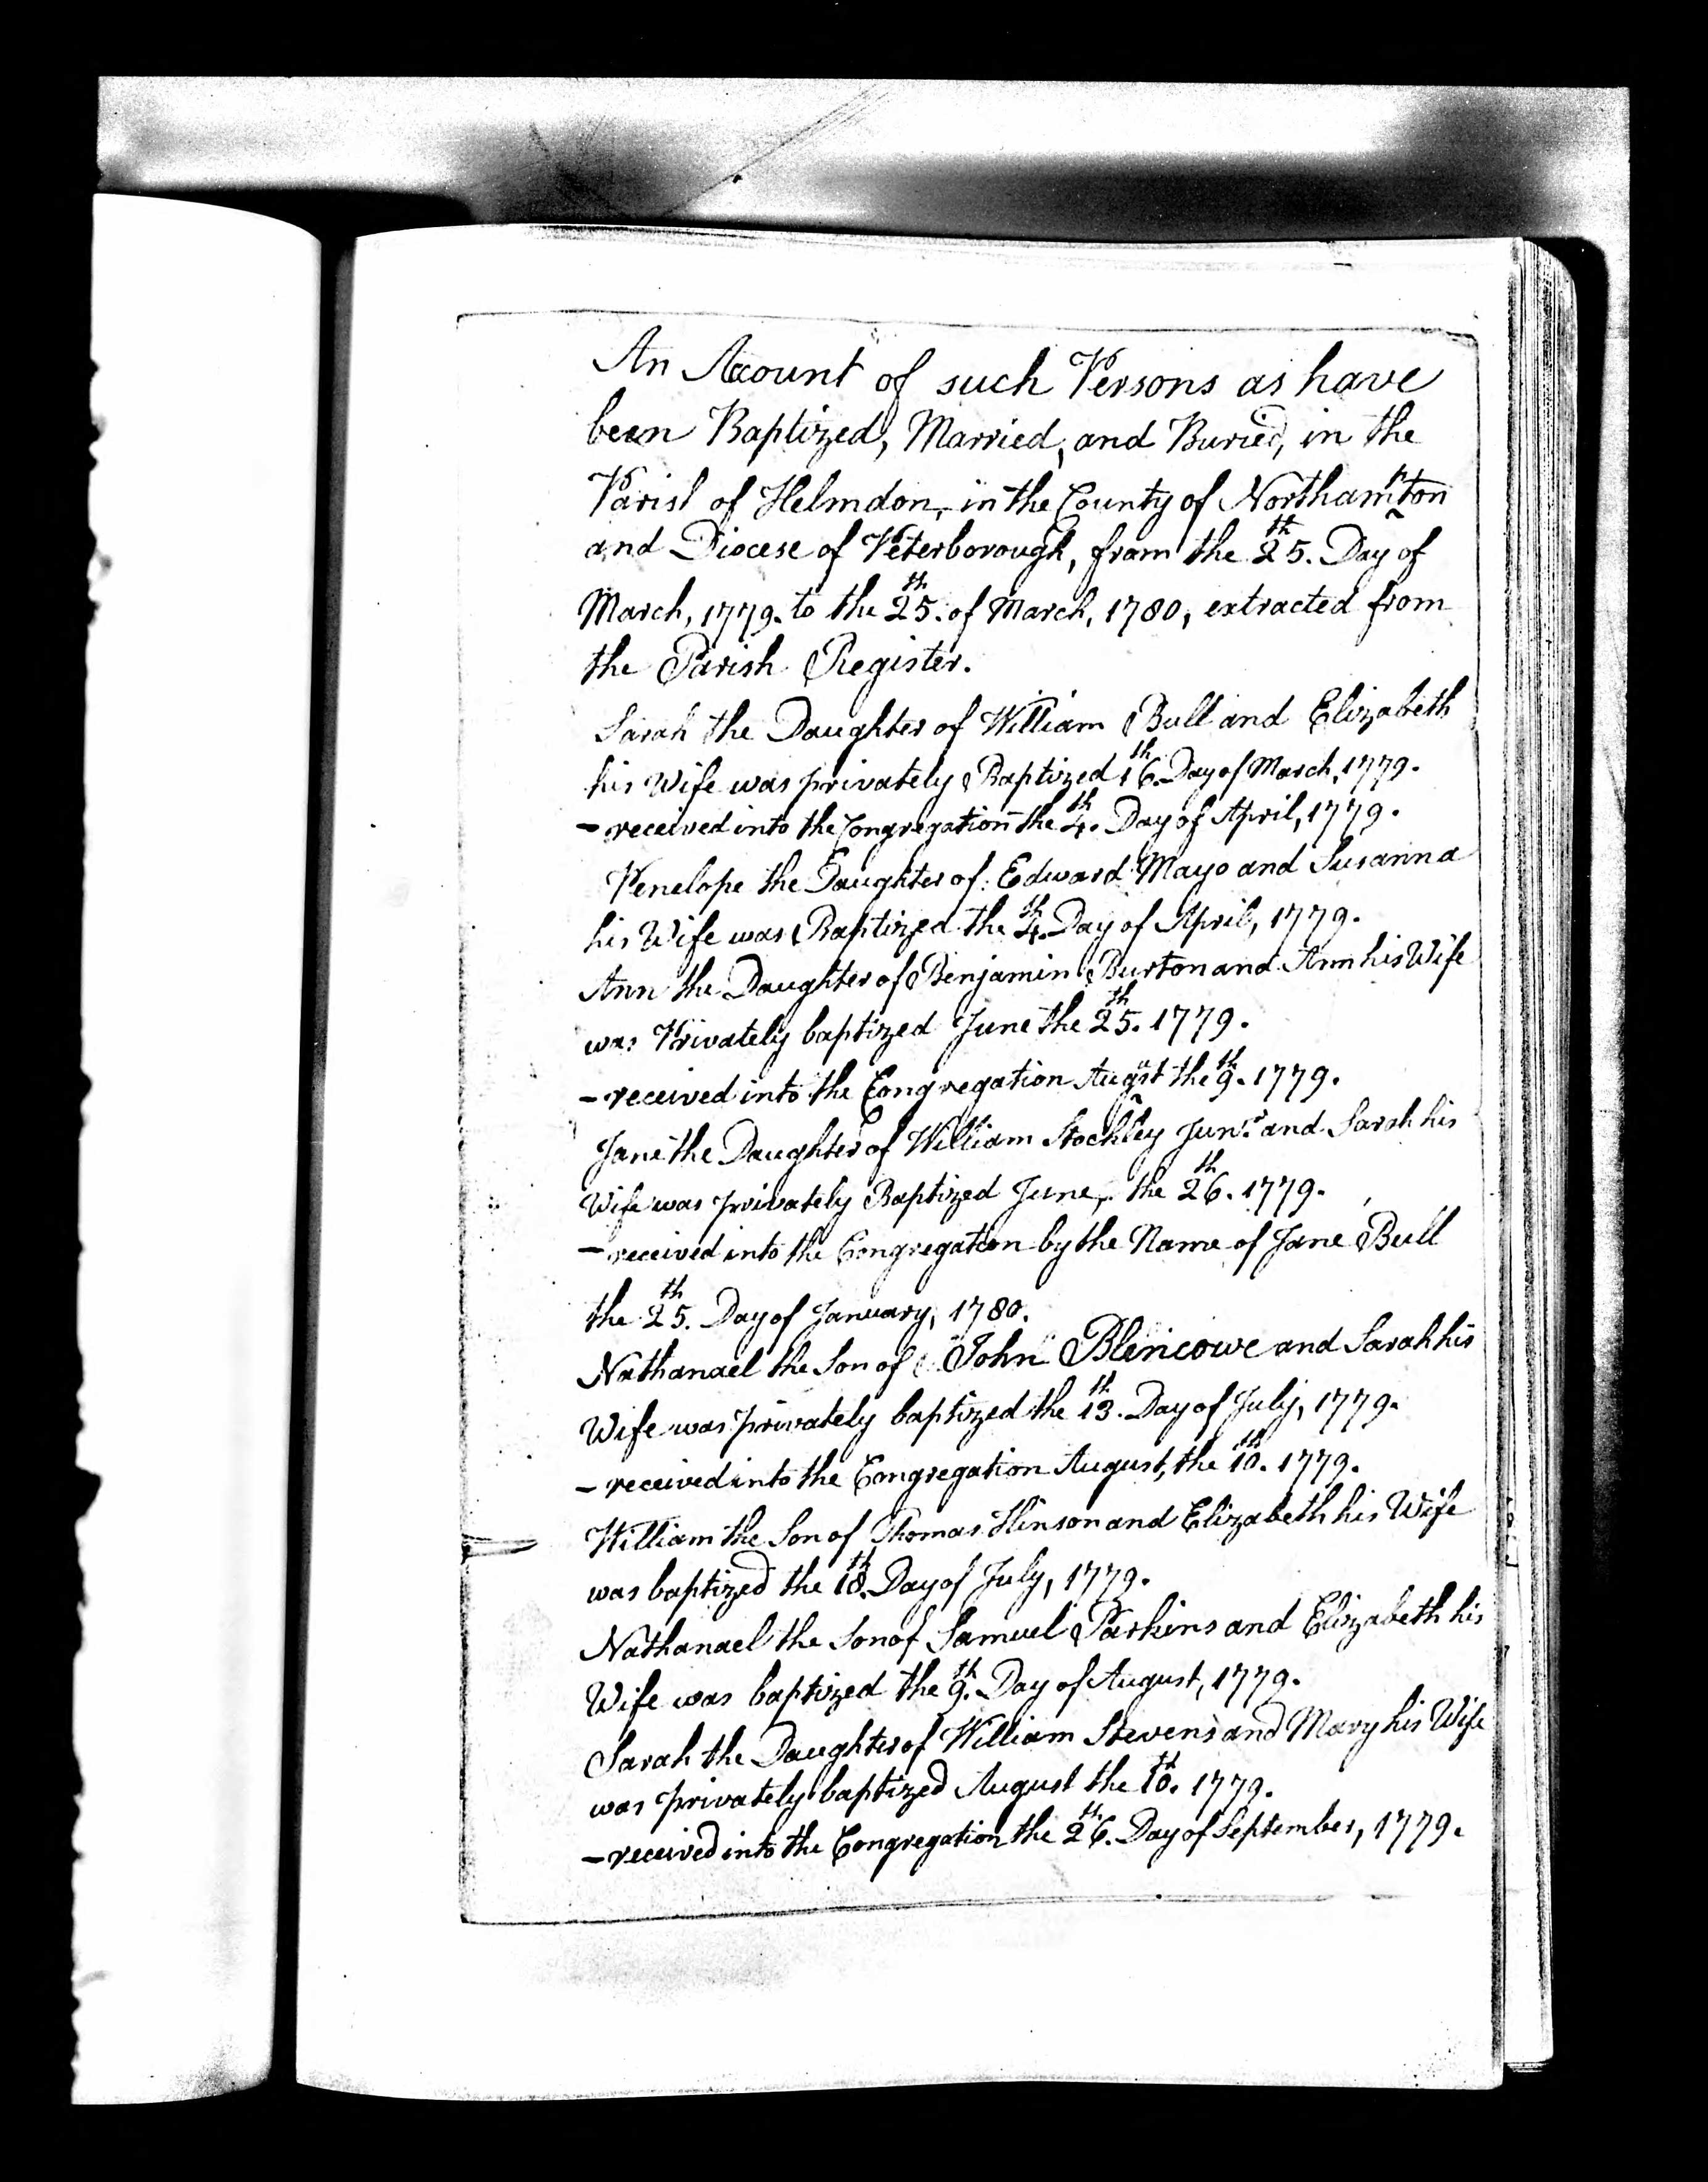 An Account of such Persons as have
been Baptized, Married, and Buried, in the
Parish of Helmdon, in the County of Northampton
and Diocese of Peterborough, from the 25.th Day of
March, 1779. to the 25.th of March, 1780, extracted from
the Parish Register.
Sarah the Daughter of William Bull and Elizabeth
his Wife was privately Baptized 16.th Day of March, 1779.
- received into the Congregation the 4.th Day of April, 1779.
Penelope the Daughter of Edward Mayo and Susanna
his Wife was Baptized the 4.th Day of April, 1779.
Ann the Daughter of Benjamin Burton and Ann his Wife
was Privately baptized June the 25.th 1779.
- received into the Congregation Augst the 9.th 1779.
Jane the Daughter of William Stockley Junr. and Sarah his
Wife was privately Baptized June, the 26.th 1779.
- received into the Congregation by the Name of Jane Bull
the 25.th Day of January, 1780.
Nathanael the Son of John Blencowe and Sarah his
Wife was privately baptized the 13.th Day of July, 1779.
- received into the Congregation August, the 10.th 1779.
William the Son of Thomas Hinson and Elizabeth his Wife
was baptized the 18.th Day of July, 1779.
Nathanael the Son of Samuel Parkins and Elizabeth his
Wife was baptized the 9.th Day of August, 1779.
Sarah the Daughter of William Stevens and Mary his Wife
was privately baptized August the 10.th 1779.
- received into the Congregation the 26.th Day of September, 1779.